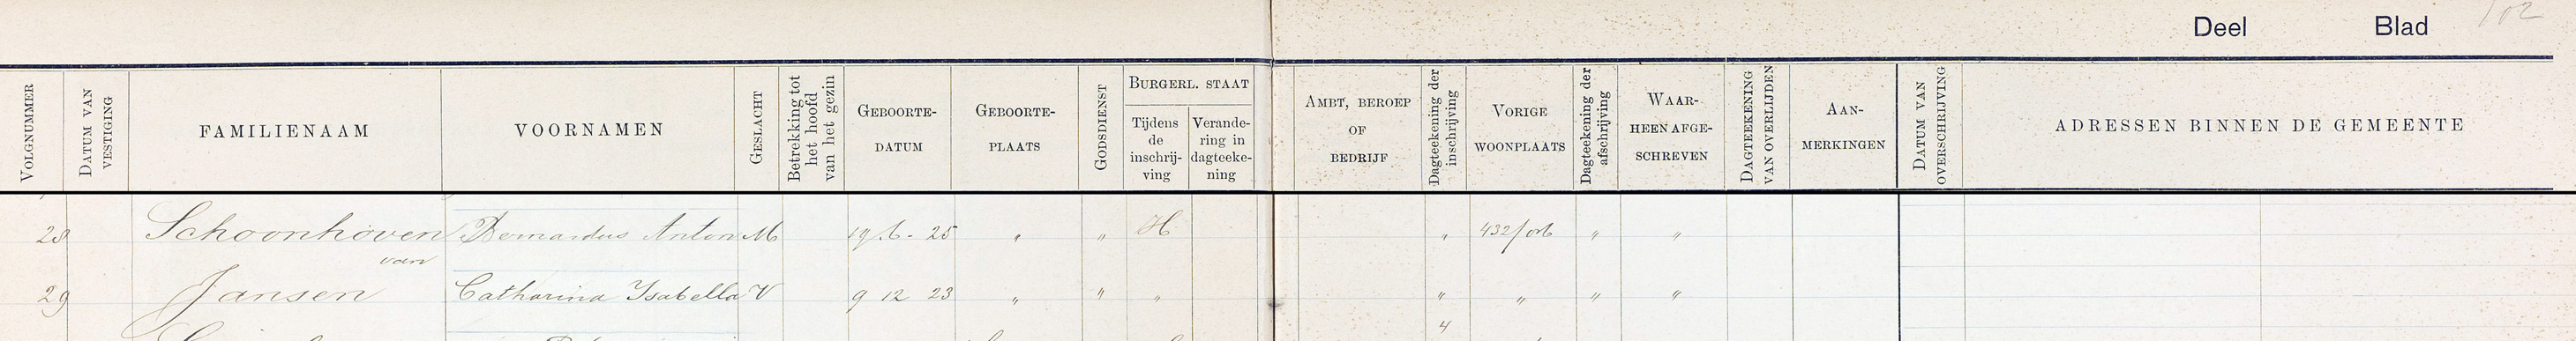 Deel Blad 102
VOLGNUMMER
DATUM VAN VESTIGING
FAMILIENAAM
VOORNAMEN
GESLACHT
Betrekking tot het hoofd van het gezin
GEBOORTE-DATUM
GEBOORTE-PLAATS
GODSDIENST
BURGERL. STAAT
Tijdens de inschrij-ving
Verande-ring in dagteeke-ning
AMBT, BEROEP OF BEDRIJF
Dagteekening der inschrijving
VORIGE WOONPLAATS
Dagteekening der afschrijving
WAAR-HEEN AFGE-SCHREVEN
DAGTEEKENING VAN OVERLIJDEN
AAN-MERKINGEN
DATUM VAN OVERSCHRIJVING
ADRESSEN BINNEN DE GEMEENTE
28 Schoonhoven Bernardus Anton M 19 6 - 25 " " H " " "
van
29 Jansen Catharina Ysabella V 9 12 23 " " " " " " "
4